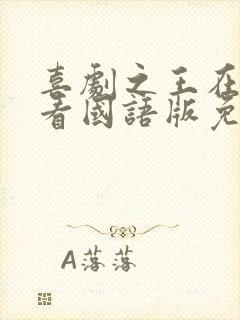 喜劇之王在
看國語版免
A落落